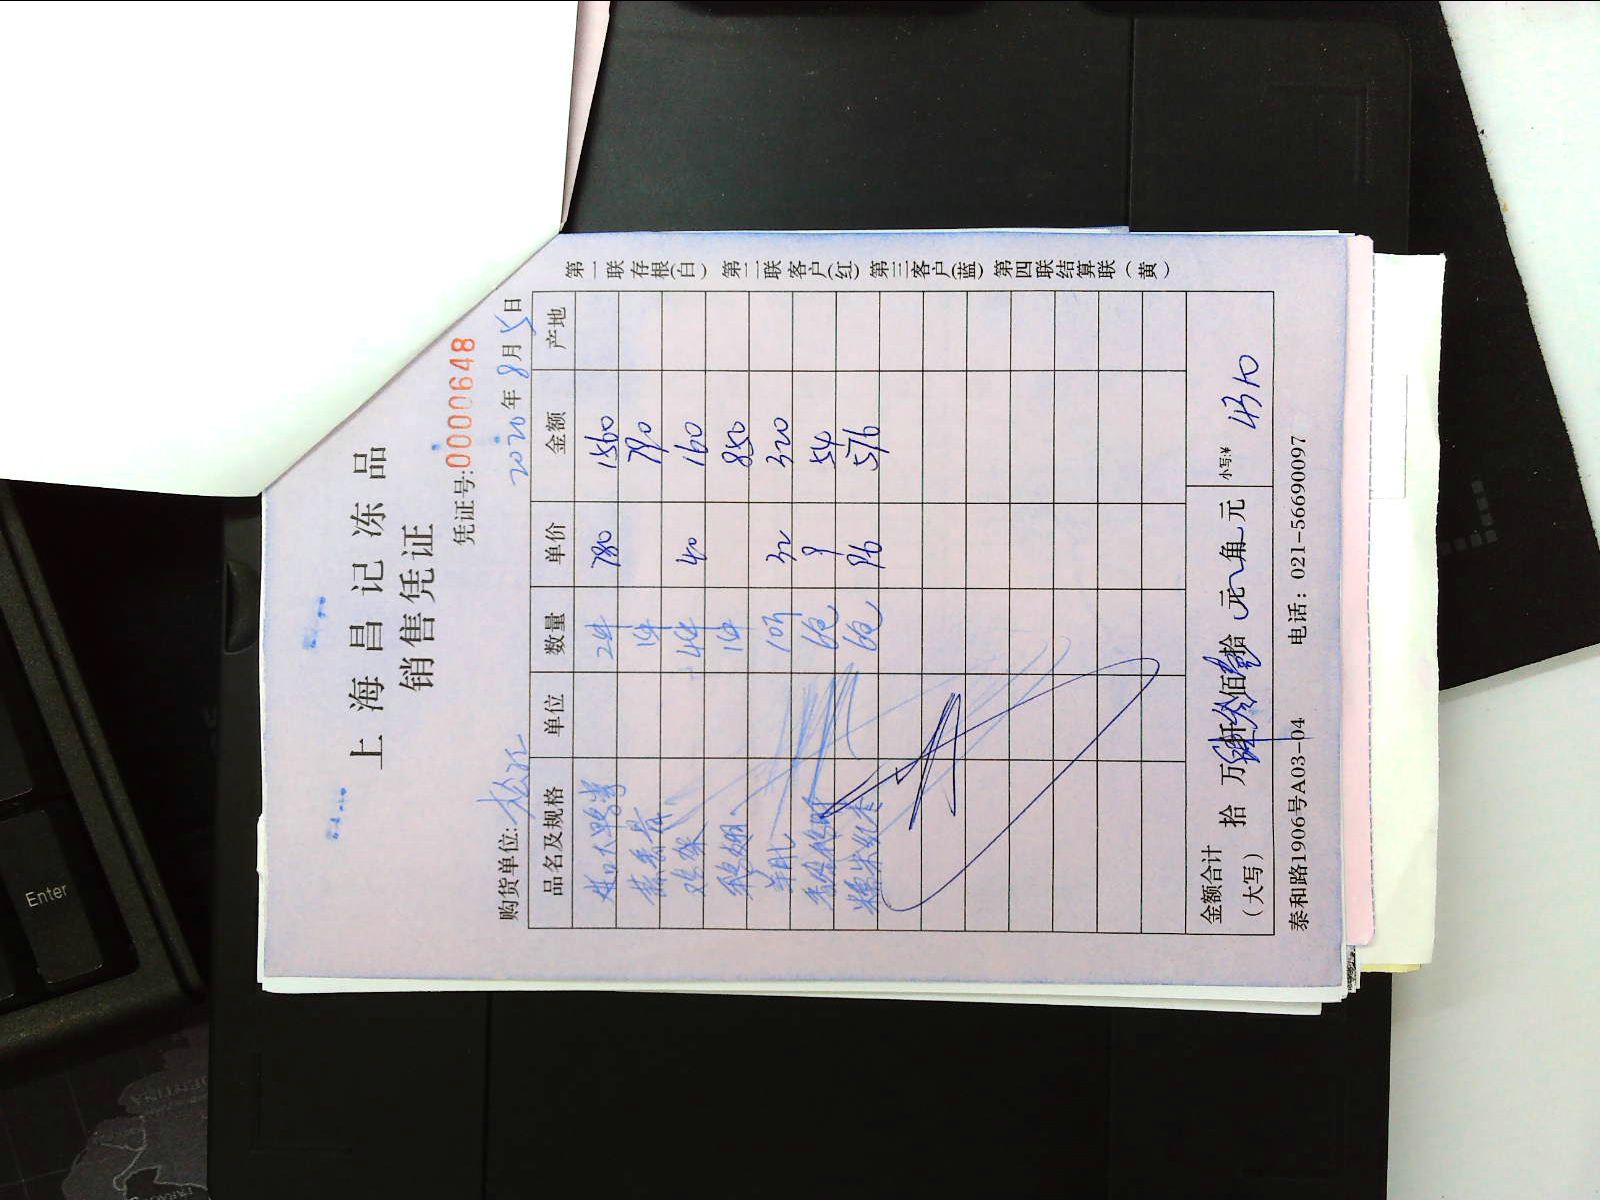 上海昌记冻品
销售凭证
凭证号:0000648
购货单位: 2020年8月5日
品名及规格 单位 数量 单价 金额 产地
2件 780 1560
1件 790
鸡架 4件 40 160
1件 850
羊肚 10斤 32 320
6包 9 54
糯米红枣 6包 96 576
金额合计（大写） 拾 万肆仟叁佰壹拾 元 角 元 小写:¥ 4310
泰和路1906号A03-04 电话: 021-56690097
第一联存根(白) 第二联客户(红) 第三客户(蓝) 第四联结算联(黄)
Enter